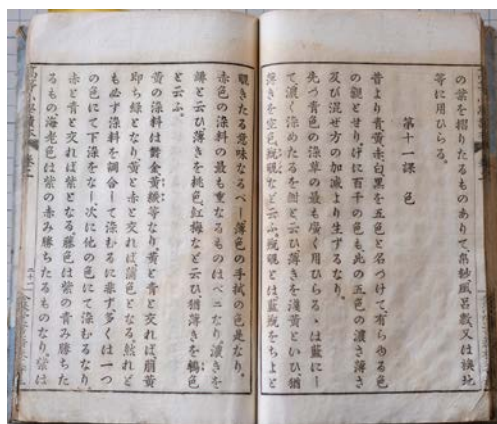 の葉を摺りたるものありて、帛紗風呂敷、又は襖地
等に用ひらる。
第十一課　色
昔より青黄赤白黒を五色と名つけて、有らゆる色
の親とせり。げに百千の色も、此の五色の濃さ薄さ
及び混ぜ方の加減より生ずるなり。
先づ青色の染草の最も廣く用ひらるゝは藍にー
て、濃く深めたるを紺と云ひ、薄きを淺黄といひ、猶
薄きを空色、瓶覗など云ふ。瓶覗とは藍瓶をちよと
覗きたる意味なるべー。薄色の手拭の色是なり。
赤色の染料の最も重なるものはベニなり。濃きを
緋と云ひ、薄きを桃色、紅梅など云ひ、猶薄きを鴇色
と云ふ。
黄の染料は鬱金、黄蘗等なり。黄と青と交れば、萠黄
即ち綠となり、黄と赤と交れば
色となる。然れど
も必ず染料を調合ーて染むるに非ず、多くは一つ
の色にて下染をなー、次に他の色にて染むるなり。
赤と青と交れば紫となる。藤色は紫の青み勝ちた
るもの、海老色は紫の赤み勝ちたるものなり。紫は